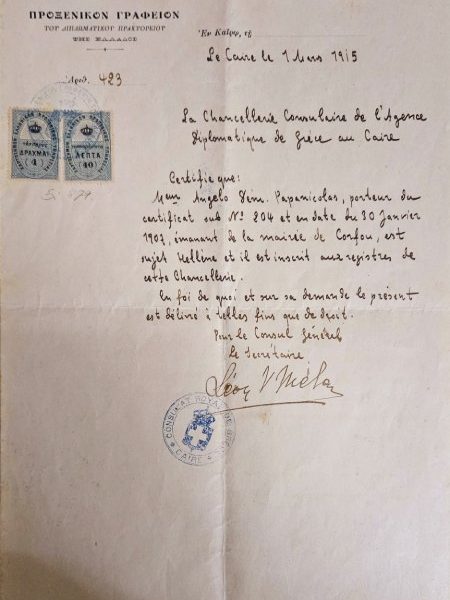 ΠΡΟΞΕΝΙΚΟΝ ΓΡΑΦΕΙΟΝ
ΤΟΥ ΔΙΠΛΩΜΑΤΙΚΟΥ ΠΡΑΚΤΟΡΕΙΟΥ
ΤΗΣ ΕΛΛΑΔΟΣ
Ἐν Καΐρῳ, τῇ
Le Caire le 1 Mars 1915
Ἀριθ. 423
La Chancellerie Consulaire de l'Agence
Diplomatique de Grèce au Caire
ΔΡΑΧΜΑΙ
(4)
ΛΕΠΤΑ
(40)
Certifie que:
Angelo Dem. Papanicolas, porteur du
certificat sub Nº 204 et en date du 30 Janvier
1907, émanant de la mairie de Corfou, est
sujet Hellène et il est inscrit aux registres de
cette Chancellerie.
En foi de quoi et sur sa demande le présent
est délivré à telles fins que de droit.
Pour le Consul Général
Le Secrétaire
CONSULAT ROYAL DE
CAIRE